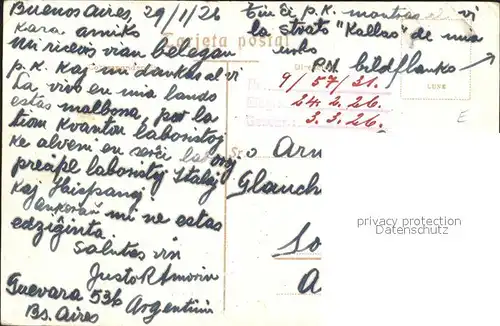 Buenos Aires, 29/1/26
Kara amiko
Mi ricevis vian belegan
p.k. kaj mi dankas al vi
La vivo en mia lando
estas malbona, por la
kvanton laboristoj
ke alvenis en serĉi laboroj
precipe laboristoj Italoj
kaj Hispanoj
ankoraŭ mi ne estas
edziĝinta.
Salutas vin
Justo R Amorin
Guevara 536 Argentini
Bs. Aires
Tarjeta postal
Tiu ĉi p.k. montras al vi
la strato "Kallao" de mia
urbo
bildflanko
9/57/31.
24.2.26.
3.3.26.
Glauch
privacy protection
Datenschutz
E